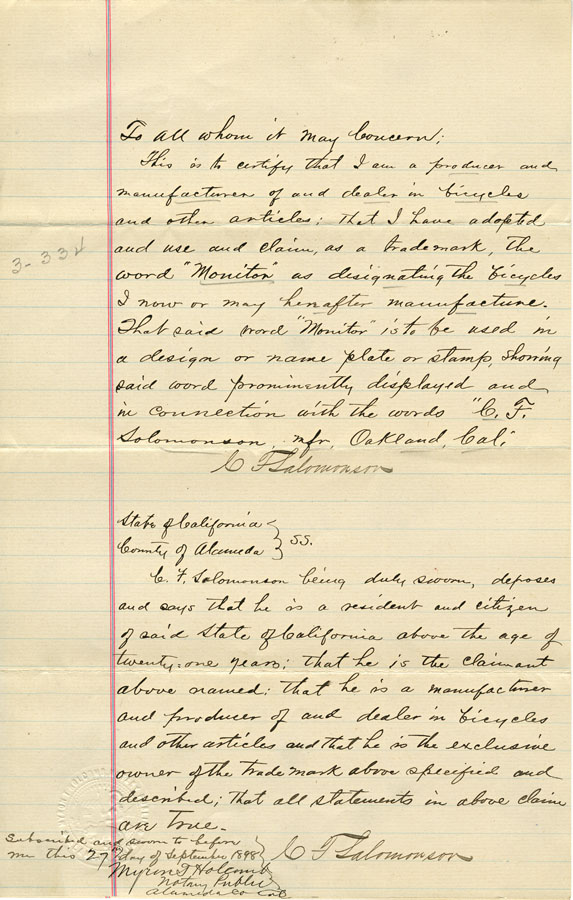 To all whom it may Concern;
This is to certify that I am a producer and
manufacturer of and dealer in bicycles
and other articles; that I have adopted
and use and claim, as a trademark, the
word "Monitor" as designating the bicycles
I now or may hereafter manufacture.
That said word "Monitor" is to be used in
a design or name plate or stamp, showing
said word prominently displayed and
in connection with the words "C. F.
Solomonson, mfr, Oakland, Cal."
C F Salomonson
3-334
State of California
County of Alameda } ss.
C. F. Solomonson being duly sworn, deposes
and says that he is a resident and citizen
of said State of California above the age of
twenty-one years; that he is the claimant
above named; that he is a manufacturer
and producer of and dealer in bicycles
and other articles and that he is the exclusive
owner of the trade mark above specified and
described; that all statements in above claim
are true.
Subscribed and sworn to before
me this 27th day of September 1898
C F Salomonson
Myron T Holcomb
Notary Public
Alameda Co Cal